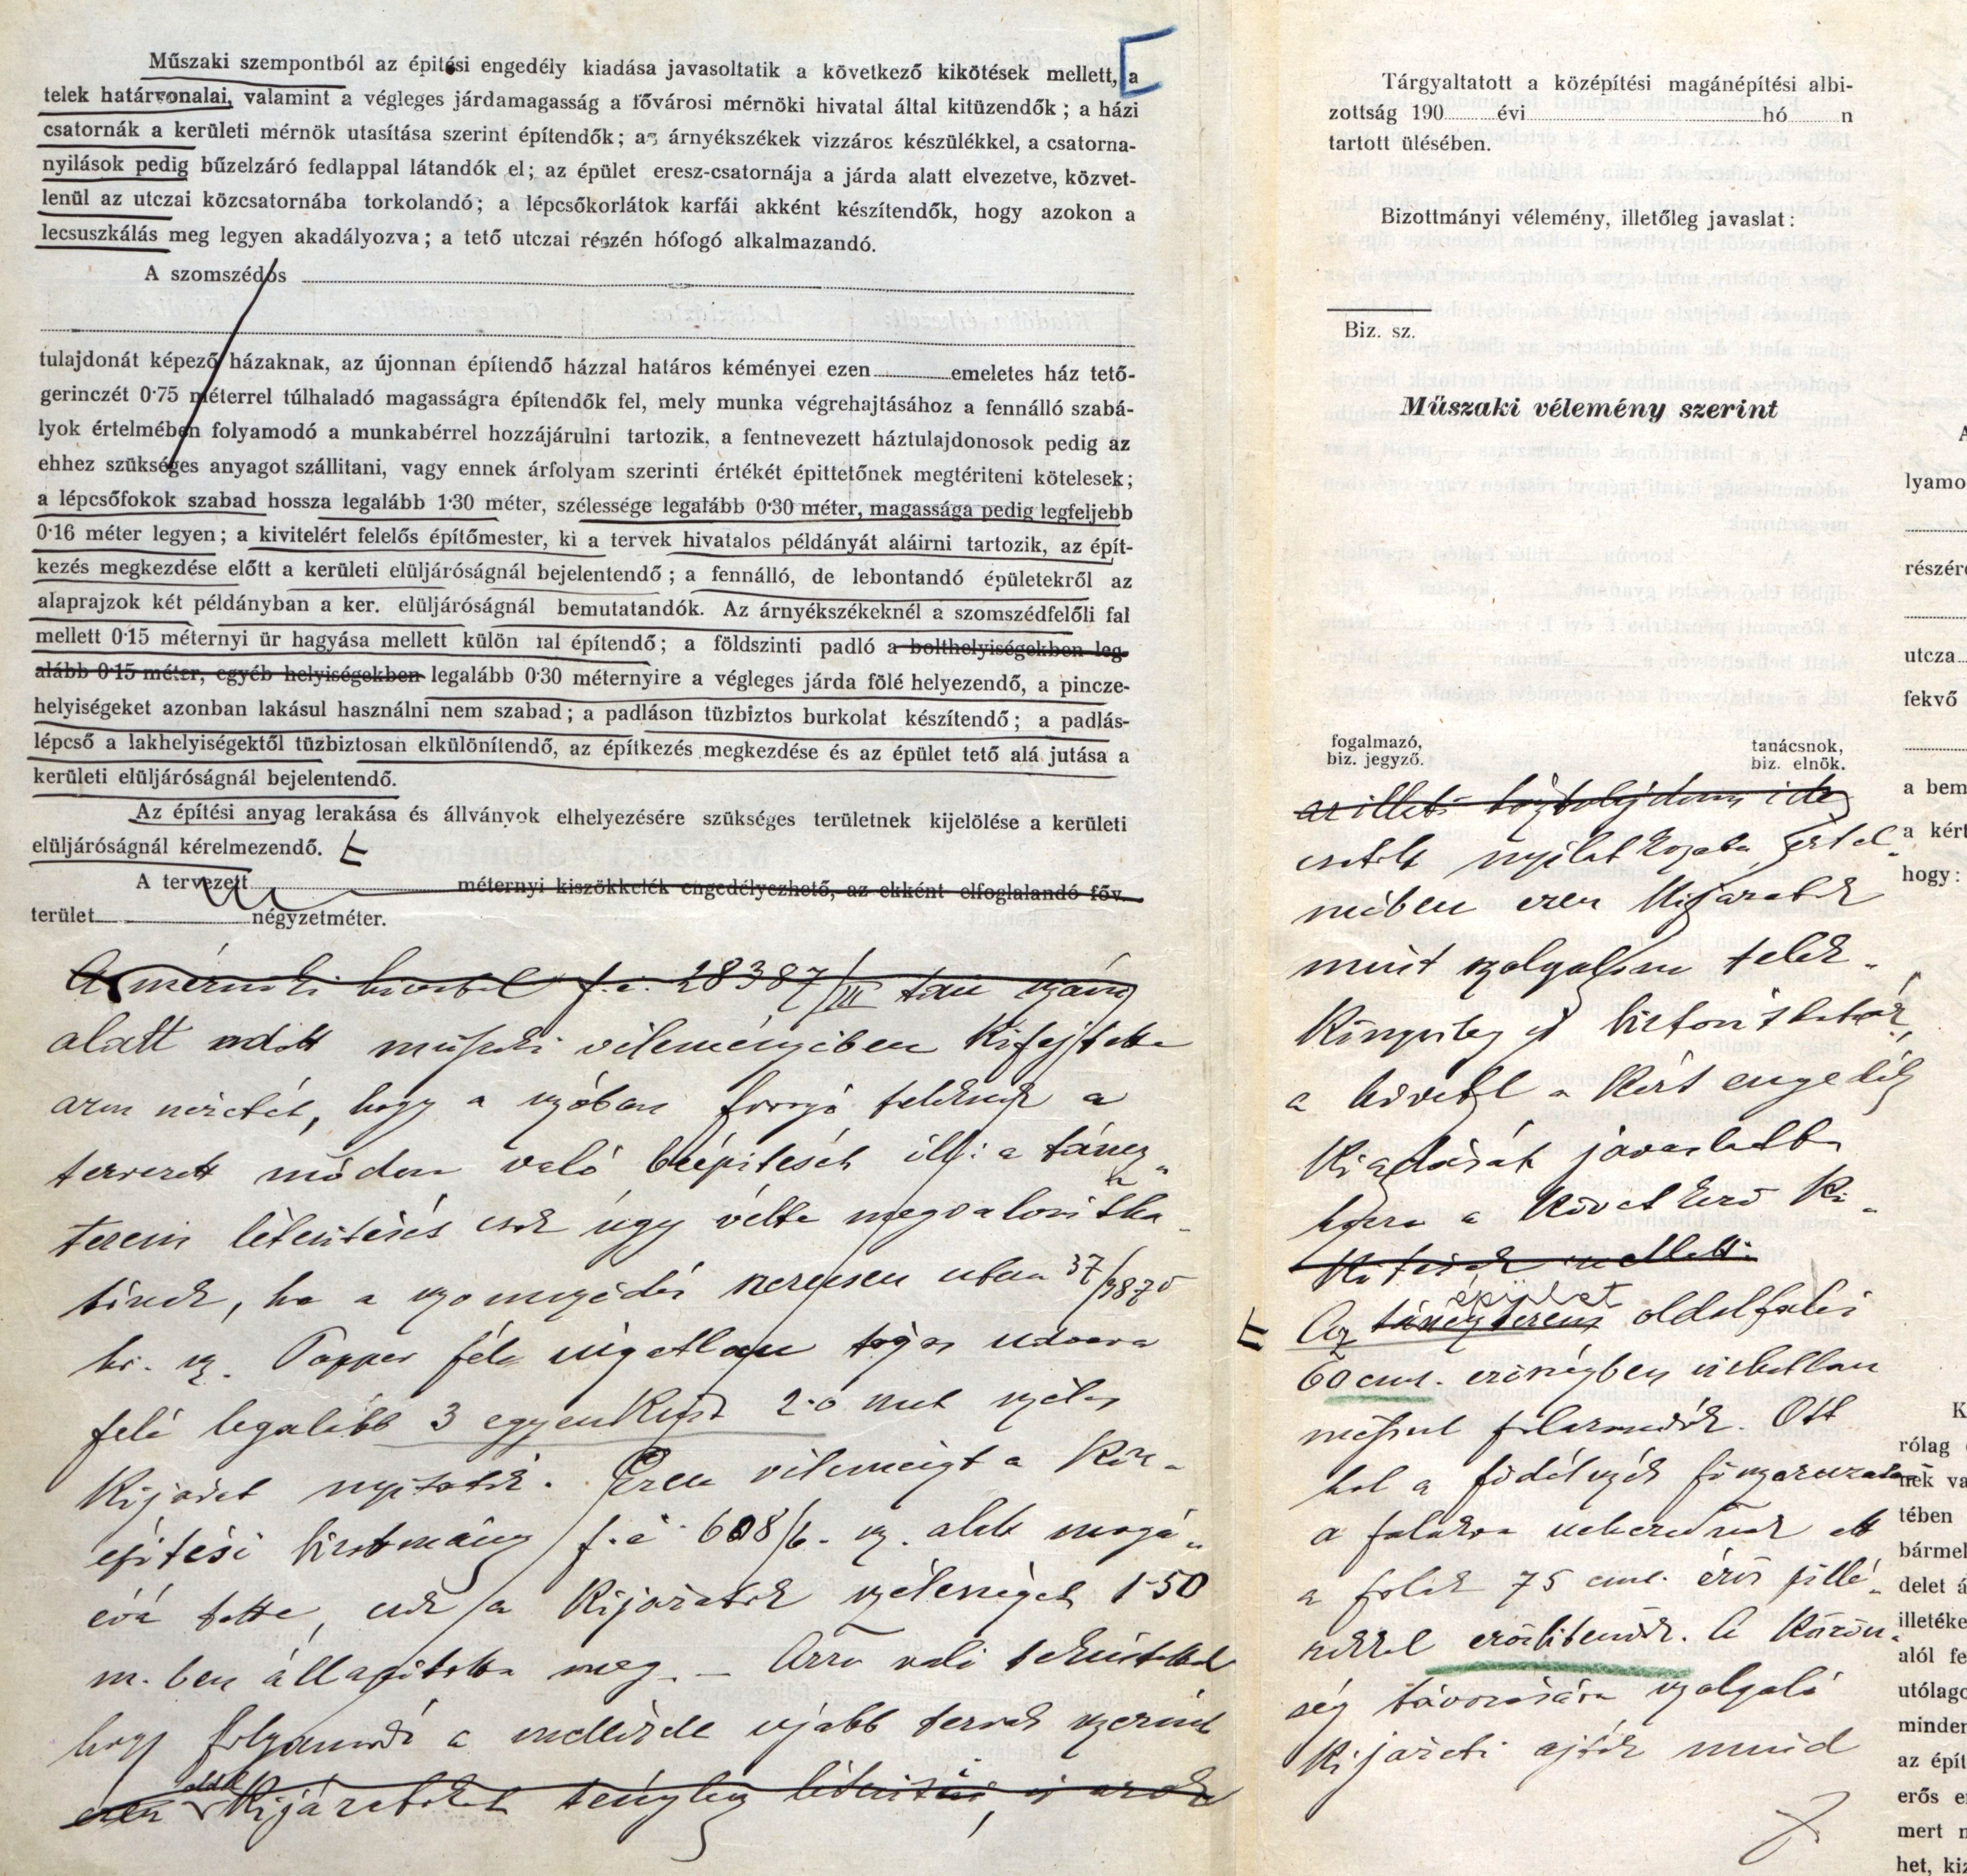 Műszaki szempontból az építési engedély kiadása javasoltatik a következő kikötések mellett, a
telek határvonalai, valamint a végleges járdamagasság a fővárosi mérnöki hivatal által kitüzendők ; a házi
csatornák a kerületi mérnök utasítása szerint építendők ; az árnyékszékek vizzáros készülékkel, a csatorna-
nyilások pedig bűzelzáró fedlappal látandók el; az épület eresz-csatornája a járda alatt elvezetve, közvet-
lenül az utczai közcsatornába torkolandó ; a lépcsőkorlátok karfái akként készítendők, hogy azokon a
lecsuszkálás meg legyen akadályozva ; a tető utczai részén hófogó alkalmazandó.
A szomszédos
tulajdonát képező házaknak, az újonnan építendő házzal határos kéményei ezen emeletes ház tető-
gerinczét 0·75 méterrel túlhaladó magasságra építendők fel, mely munka végrehajtásához a fennálló szabá-
lyok értelmében folyamodó a munkabérrel hozzájárulni tartozik, a fentnevezett háztulajdonosok pedig az
ehhez szükséges anyagot szállitani, vagy ennek árfolyam szerinti értékét épittetőnek megtériteni kötelesek ;
a lépcsőfokok szabad hossza legalább 1·30 méter, szélessége legalább 0·30 méter, magassága pedig legfeljebb
0·16 méter legyen ; a kivitelért felelős építőmester, ki a tervek hivatalos példányát aláirni tartozik, az épít-
kezés megkezdése előtt a kerületi elüljáróságnál bejelentendő ; a fennálló, de lebontandó épületekről az
alaprajzok két példányban a ker. elüljáróságnál bemutatandók. Az árnyékszékeknél a szomszédfelőli fal
mellett 0·15 méternyi ür hagyása mellett külön fal építendő ; a földszinti padló a bolthelyiségekben leg-
alább 0·15 méter, egyéb helyiségekben legalább 0·30 méternyire a végleges járda fölé helyezendő, a pincze-
helyiségeket azonban lakásul használni nem szabad ; a padláson tüzbiztos burkolat készítendő ; a padlás-
lépcső a lakhelyiségektől tüzbiztosan elkülönítendő, az építkezés megkezdése és az épület tető alá jutása a
kerületi elüljáróságnál bejelentendő.
Az építési anyag lerakása és állványok elhelyezésére szükséges területnek kijelölése a kerületi
elüljáróságnál kérelmezendő.
A tervezett méternyi kiszökkelék engedélyezhető, az ekként elfoglalandó főv.
terület négyzetméter.
A mérnöki hivatal f. é. 28387/III tan szám
alatt adott műszaki véleményében kifejtette
azon nézetét, hogy a szóban forgó teleknek a
tervezett módon való beépítését ill: a táncz-
terem létesítését csak úgy vélte megvalosítha-
tónak, ha a szomszédos 37/3870
hr. sz. Popper féle ingatlan udvara
felé legalább 3 egyenként 2·0 met széles
kijárat nyittatik. Ezen véleményt a köz-
építési bizotmány f. é. 608/b. sz. alatt magá-
évá tette, csak a kijáratok szélességét 1·50
m.-ben állapitotta meg. — Arra való tekintettel
hogy folyamodó a mellékelt ujabb tervek szerint
ezen kijáratokat tényleg létesíti, és azok
Tárgyaltatott a középítési magánépítési albi-
zottság 190 évi hó n
tartott ülésében.
Bizottmányi vélemény, illetőleg javaslat :
Biz. sz.
Műszaki vélemény szerint
fogalmazó,
biz. jegyző.
tanácsnok,
biz. elnök.
az illető háztulajdonos ide
csatolt nyilatkozata értel-
mében ezen kijáratok
mint szolgalom telek-
könyvileg is biztosithatók,
a hivatal a kért engedély
kiadását javaslatba
hozza a következő ki-
kötések mellett:
épület
Az tánczterem oldalfalai
60 cm. erősségben
falazandók. Ott
hol a födélszék főszaruzata
a falakra nehezednek ott
a falak 75 cm. erős pillé-
rekkel erősitendők. A közön-
ség távozására szolgaló
kijárati ajtók mind
lyamo
részére
utcza
fekvő
a bem
a kért
hogy :
K
rólag
nek va
tében
bármel
delet á
illetéke
alól fe
utólago
minden
az épít
erős e
mert n
het, kiz